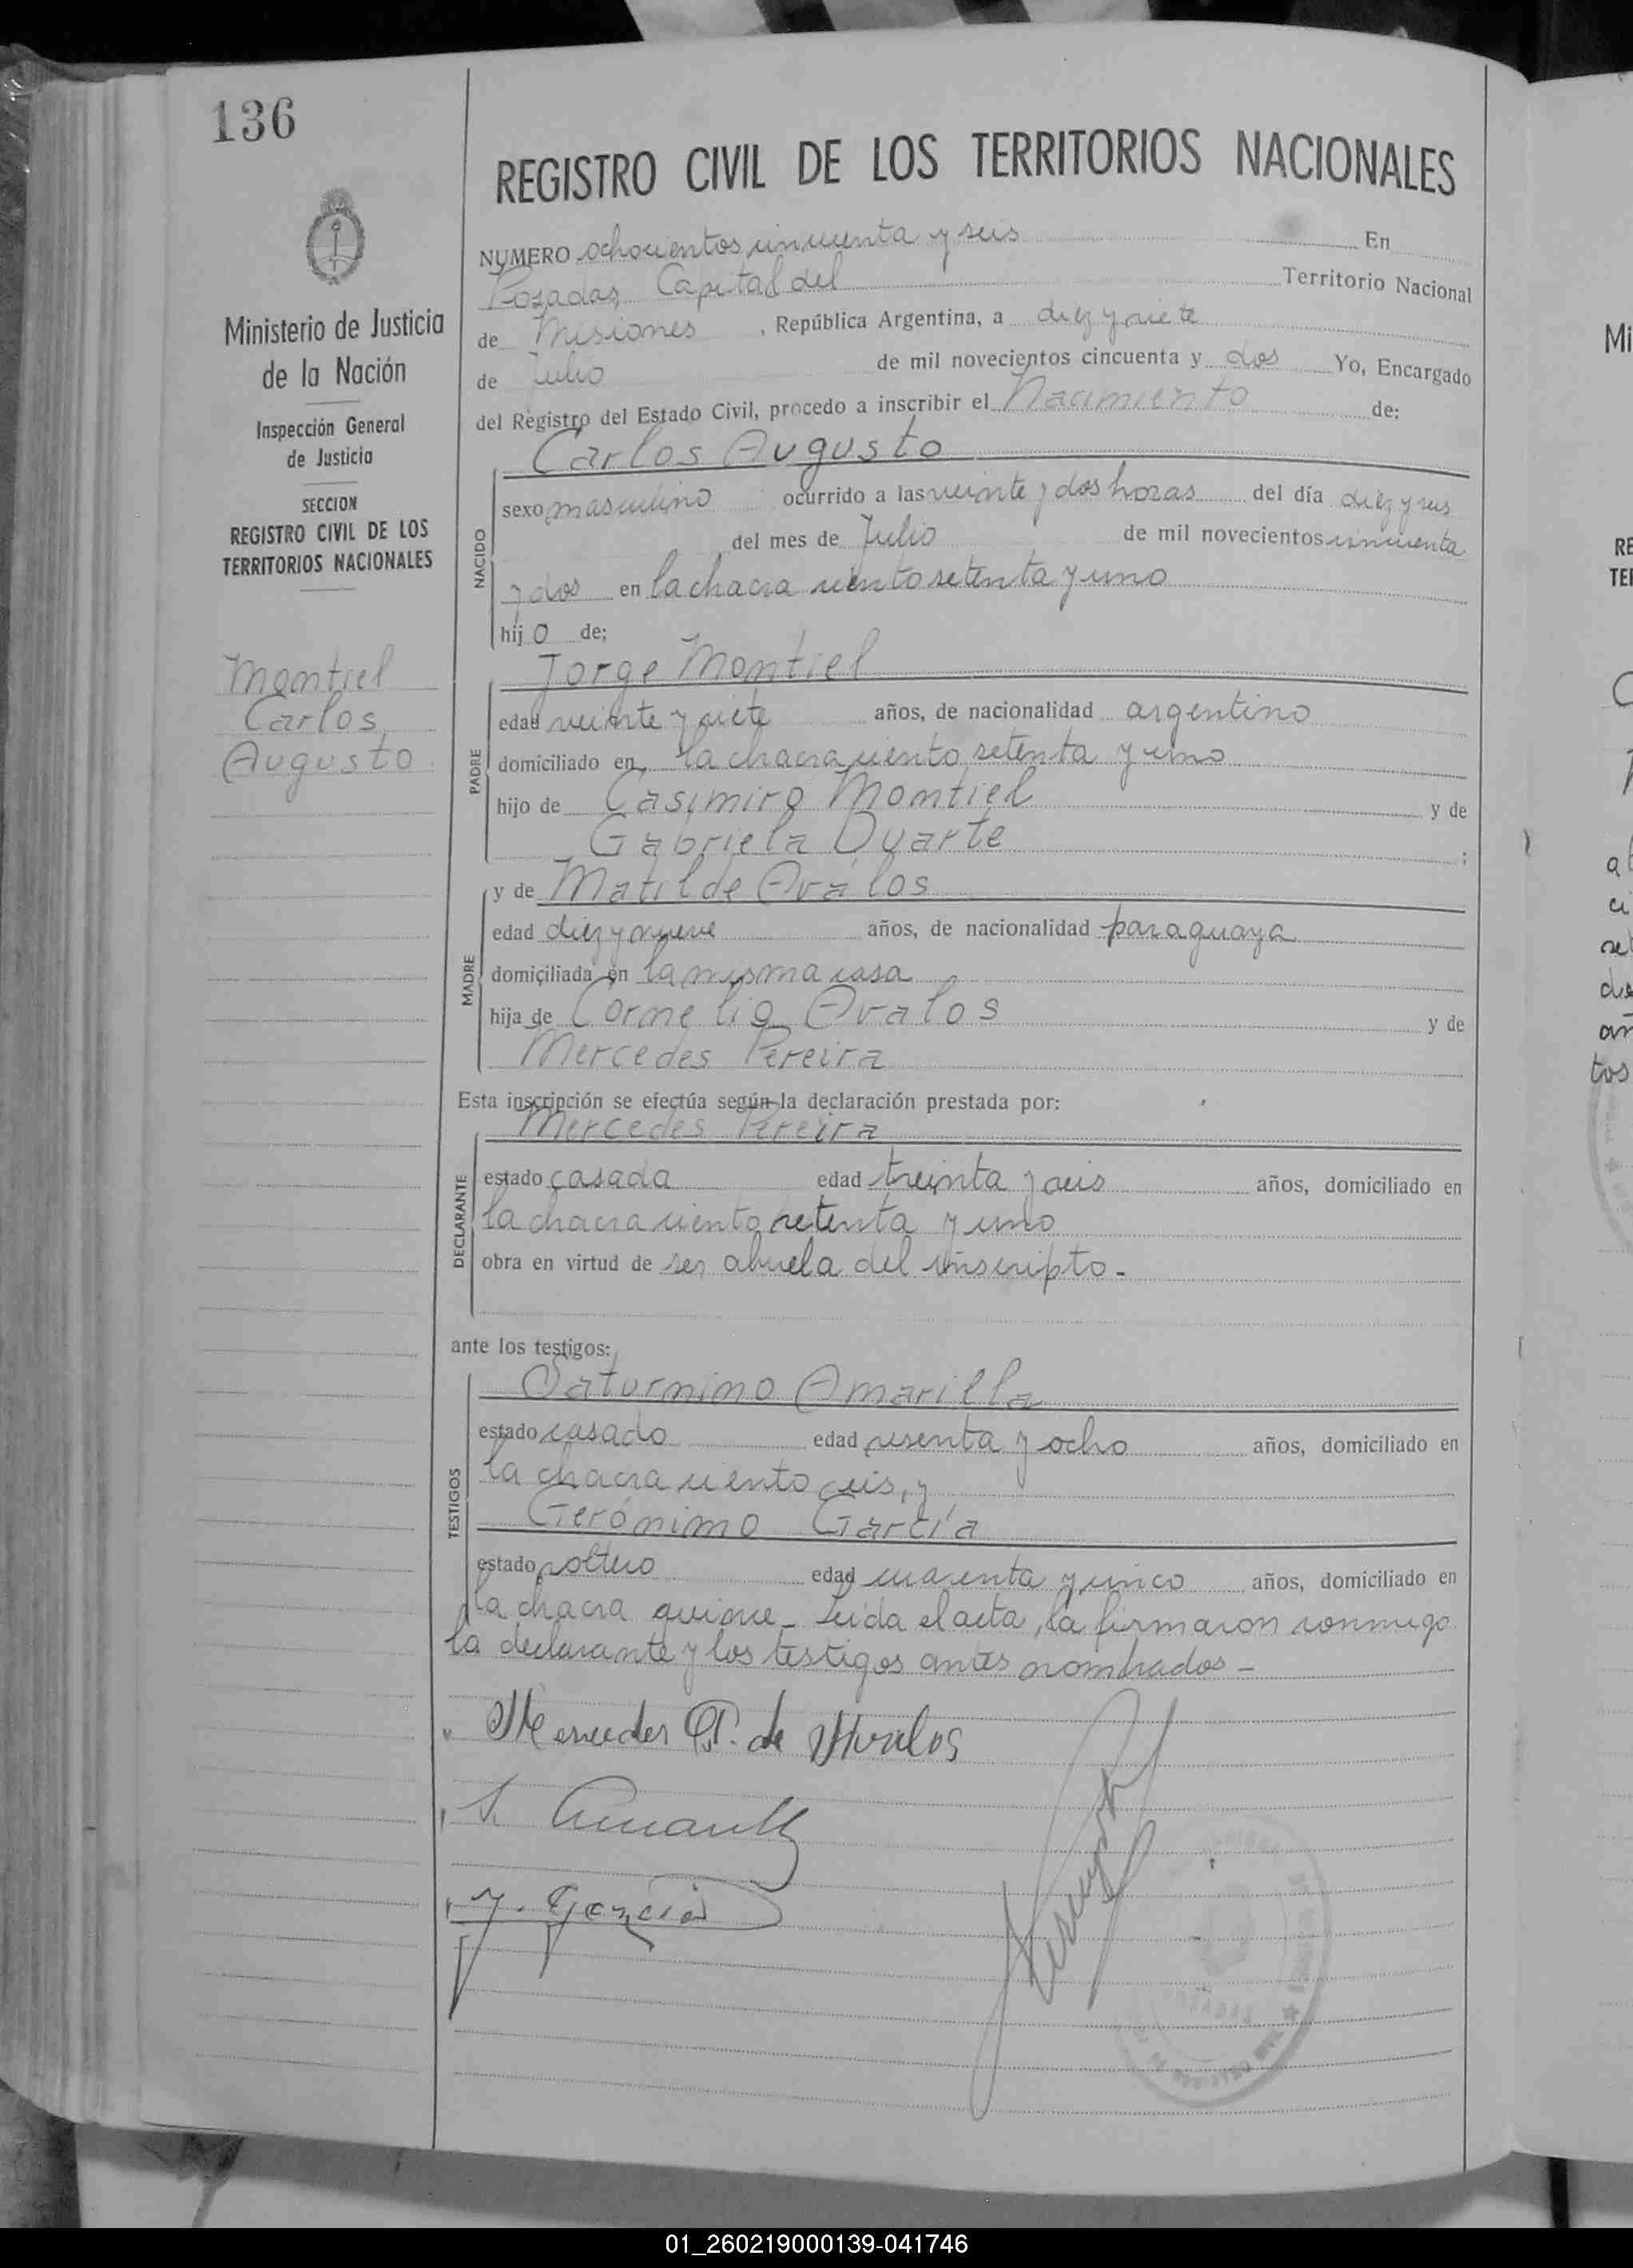 136
REGISTRO CIVIL DE LOS TERRITORIOS NACIONALES
NUMERO ochocientos cincuenta y seis En
Posadas, Capital del Territorio Nacional
de Misiones , República Argentina, a diez y siete
de Julio de mil novecientos cincuenta y dos Yo, Encargado
del Registro del Estado Civil, procedo a inscribir el Nacimiento de:
Ministerio de Justicia
de la Nación
Inspección General
de Justicia
SECCION
REGISTRO CIVIL DE LOS
TERRITORIOS NACIONALES
Montiel
Carlos
Augusto
NACIDO
Carlos Augusto
sexo masculino ocurrido a las veinte y dos horas del día diez y seis
del mes de Julio de mil novecientos cincuenta
y dos en la chacra ciento setenta y uno
hijo de;
PADRE
Jorge Montiel
edad veinte y siete años, de nacionalidad argentino
domiciliado en, la chacra ciento setenta y uno
hijo de Casimiro Montiel y de
Gabriela Duarte ;
MADRE
y de Matilde Ovalos
edad diez y nueve años, de nacionalidad paraguaya
domiciliada en la misma casa
hija de Cornelio Ovalos y de
Mercedes Pereira
Esta inscripción se efectúa según la declaración prestada por:
DECLARANTE
Mercedes Pereira
estado casada edad treinta y seis años, domiciliado en
la chacra ciento setenta y uno
obra en virtud de ser abuela del inscripto-
ante los testigos:
TESTIGOS
Saturnino Amarilla
estado casado edad sesenta y ocho años, domiciliado en
la chacra ciento seis, y
Gerónimo García
estado soltero edad cuarenta y cinco años, domiciliado en
la chacra quince- Leída el acta, la firmaron conmigo
la declarante y los testigos antes nombrados-
Mercedes P. de Avalos
S. Amarilla
J. Garcia
Mi
RE
TE
01_260219000139-041746